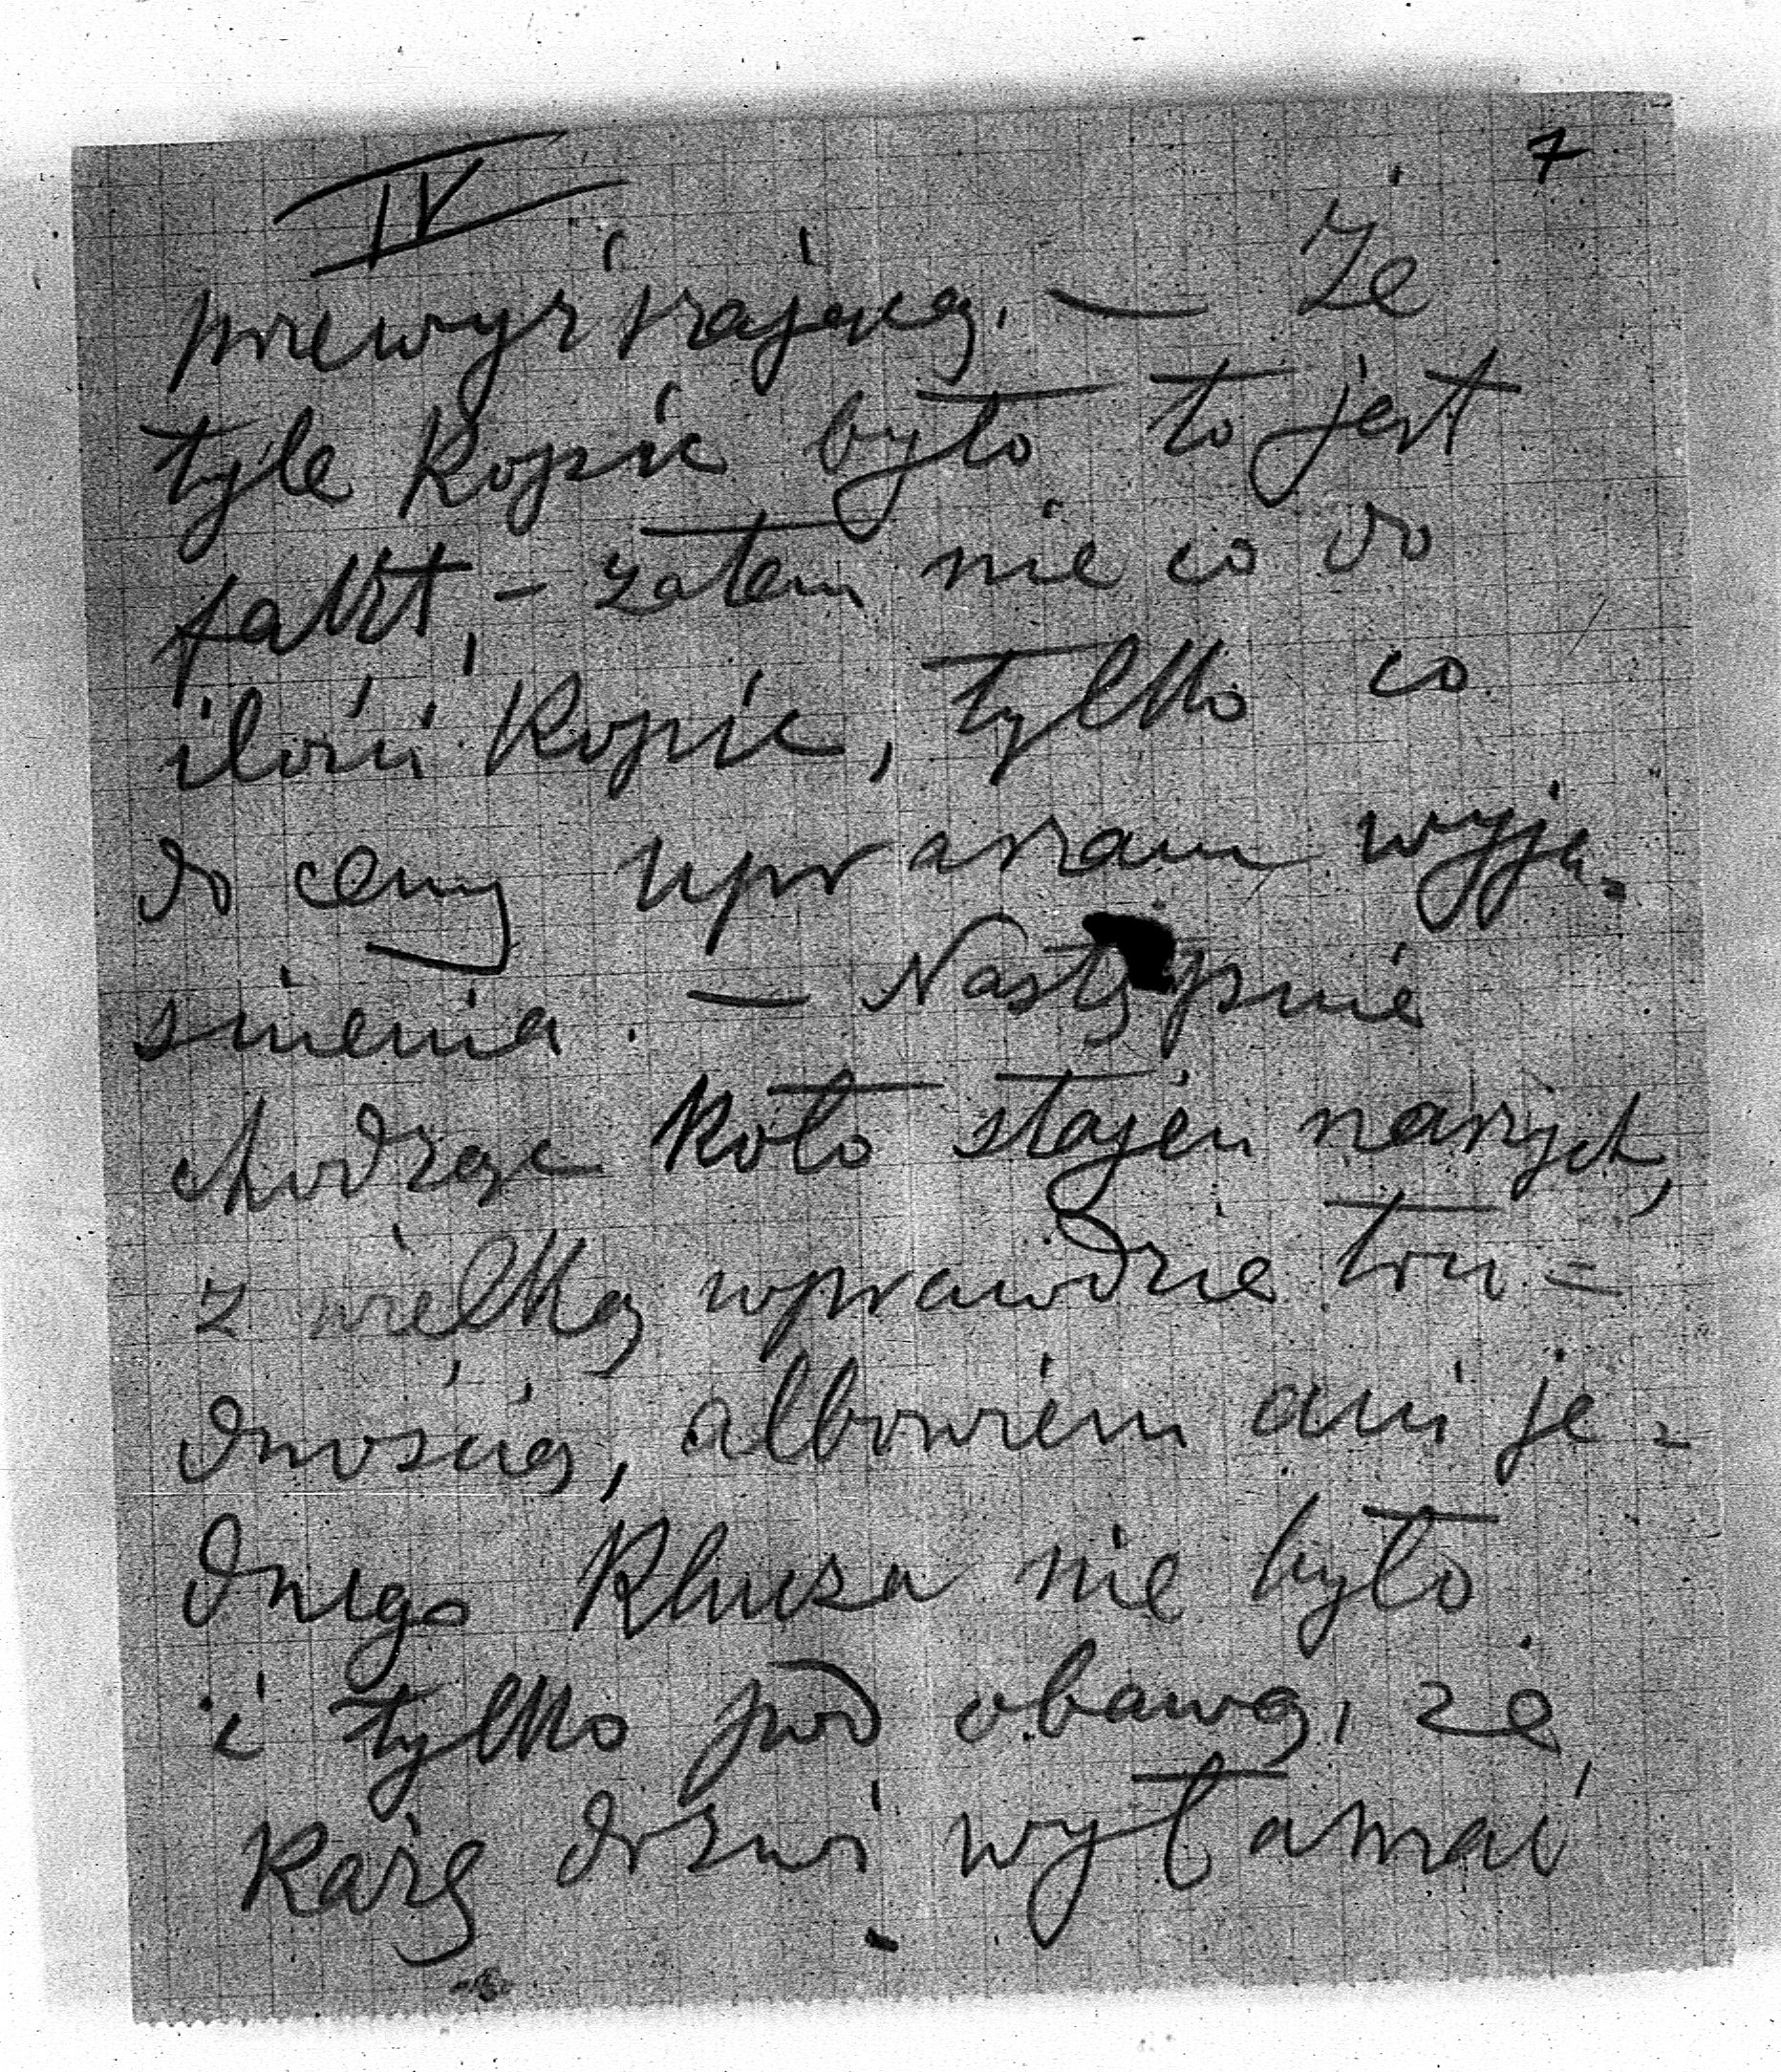 IV
7
przewyższającą. — Że
tyle kopić było to jest
fakt, - zatem nie co do
ilości kopić, tylko co
do ceny upraszam wyja-
śnienia. — Następnie
chodząc koło stajen naszych,
z wielką wprawdzie tru=
dnością, albowiem ani je=
dnego klucza nie było
i tylko pod obawą, że
każę drzwi wyłamać